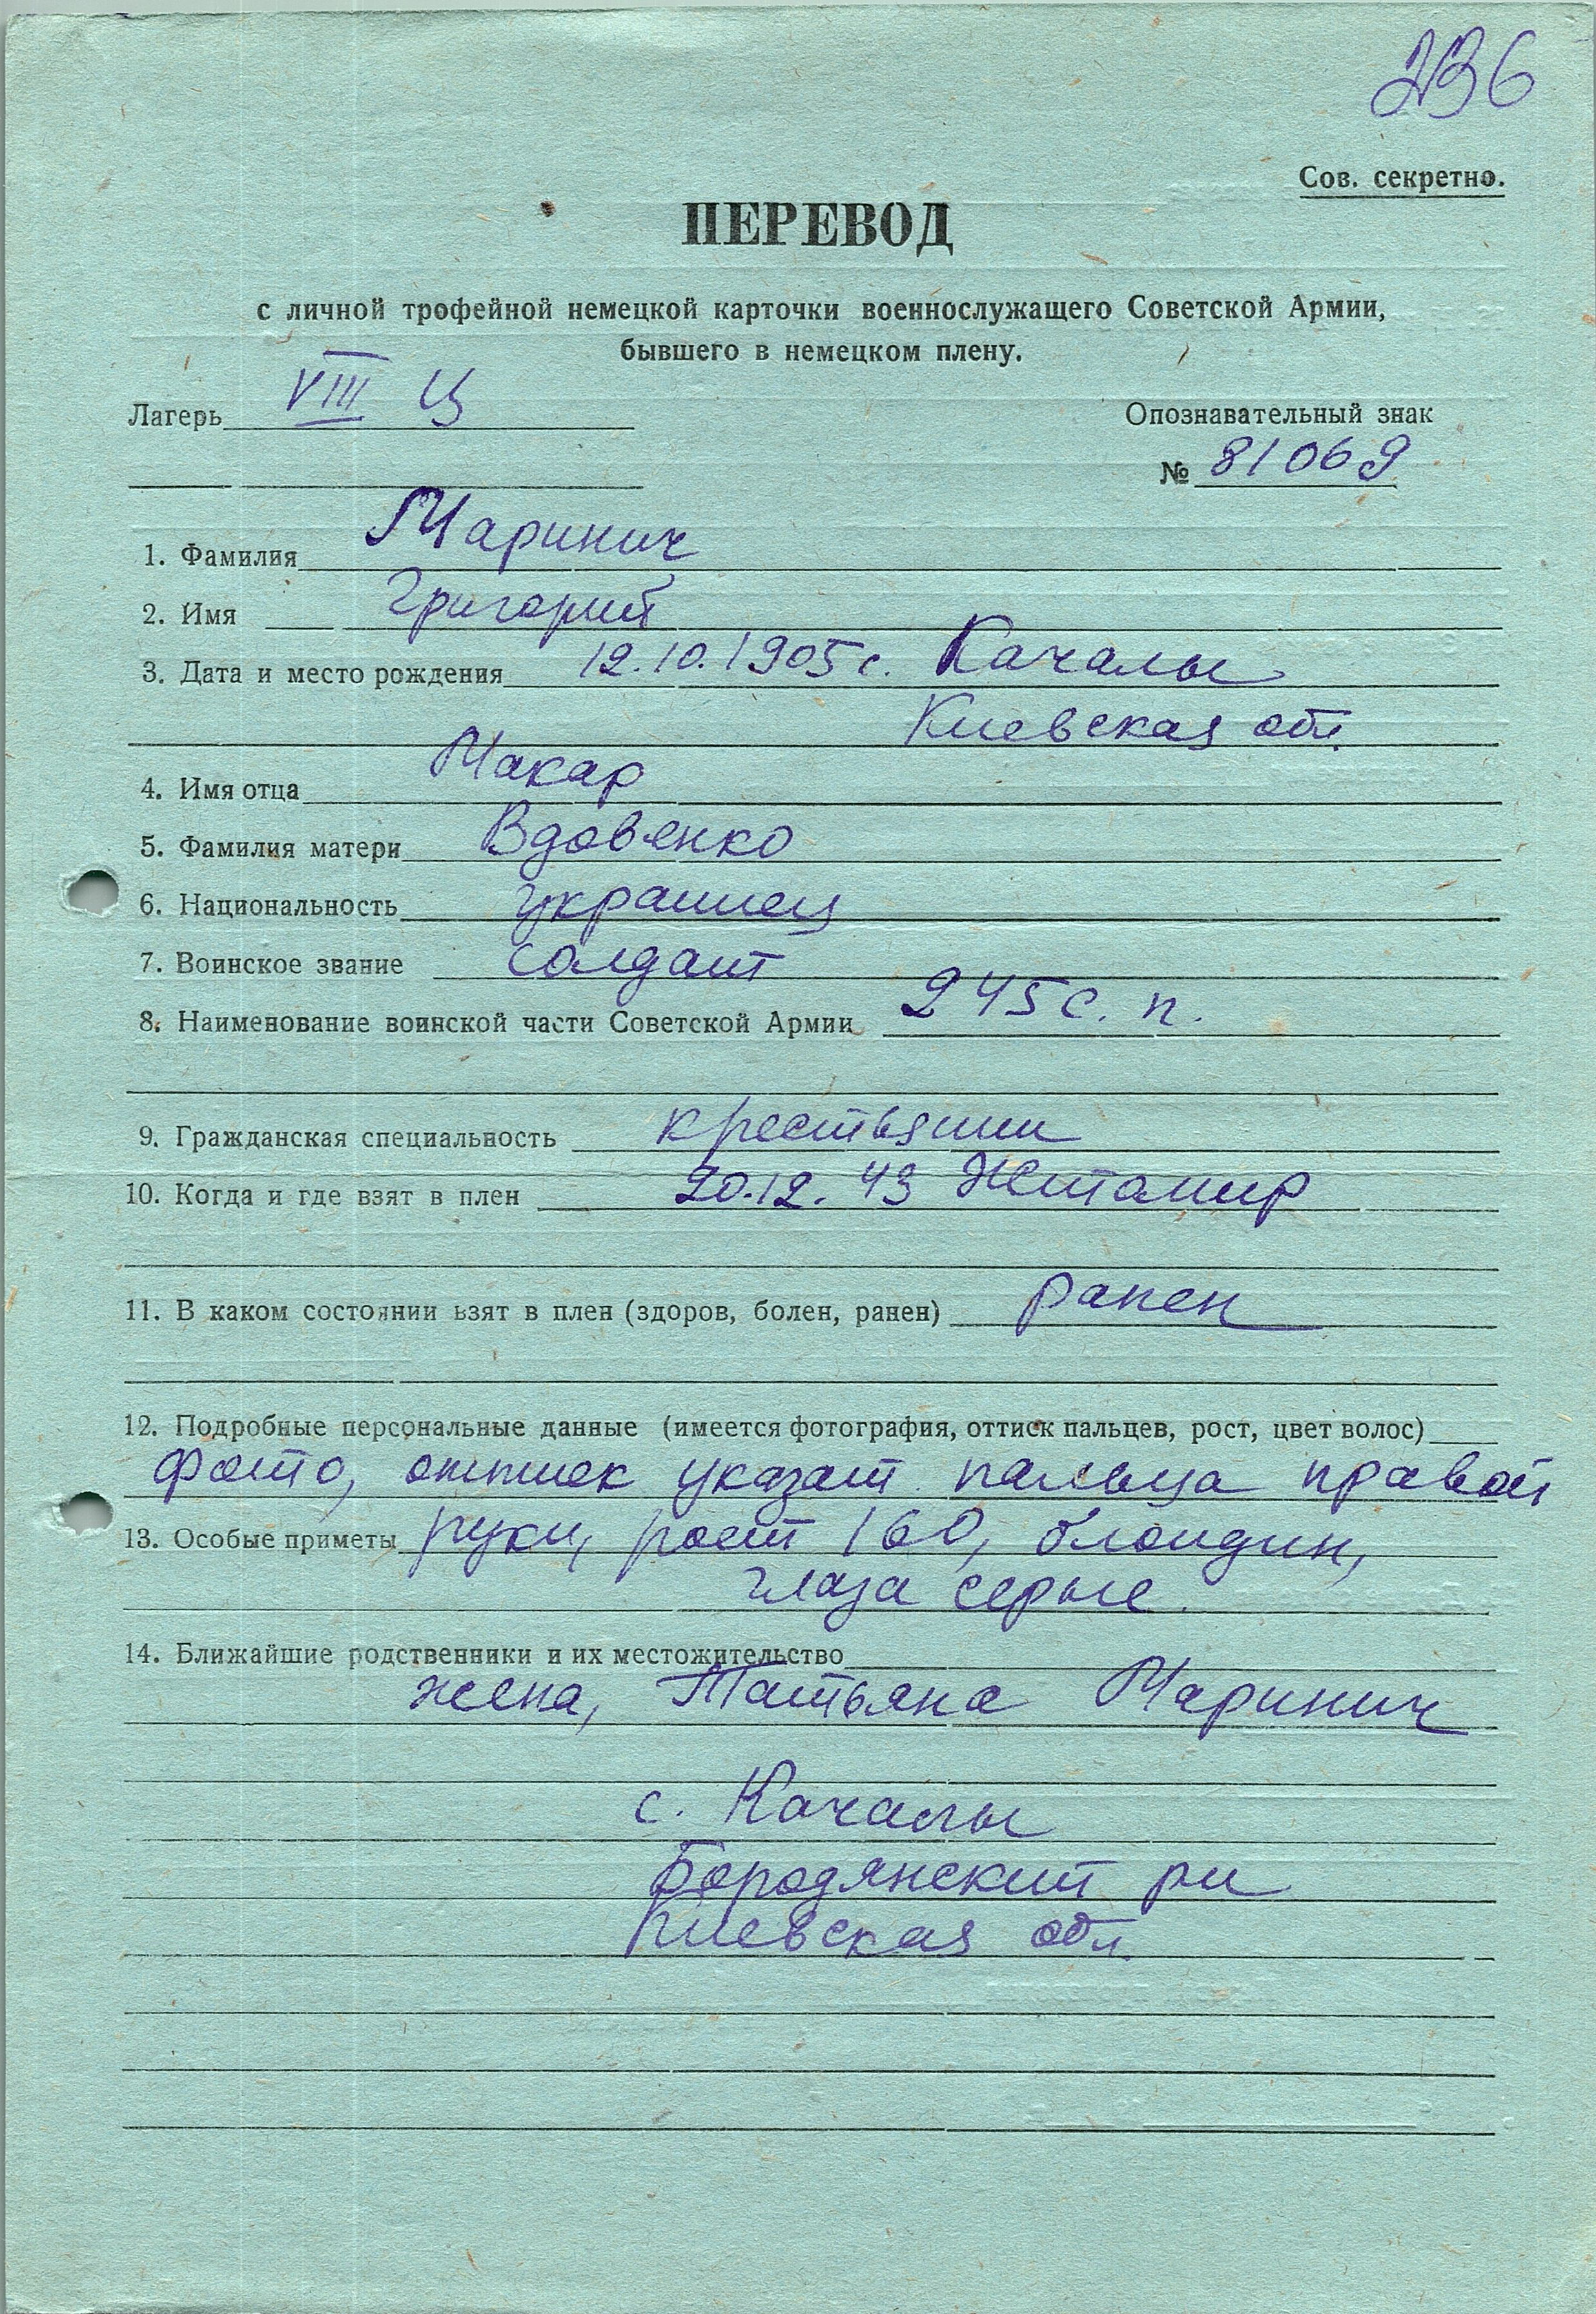 236
Сов. секретно.
ПЕРЕВОД
с личной трофейной немецкой карточки военнослужащего Советской Армии,
бывшего в немецком плену.
Лагерь VIII Ц
Опознавательный знак
№ 81069
1. Фамилия Маринич
2. Имя Григорий
3. Дата и место рождения 12.10.1905 с. Качалы
Киевская обл.
4. Имя отца Макар
5. Фамилия матери Вдовенко
6. Национальность украинец
7. Воинское звание солдат
8. Наименование воинской части Советской Армии 245 с. п.
9. Гражданская специальность крестьянин
10. Когда и где взят в плен 20.12.43 Житомир
11. В каком состоянии взят в плен (здоров, болен, ранен) ранен
12. Подробные персональные данные (имеется фотография, оттиск пальцев, рост, цвет волос)
Фото, оттиск указат. пальца правой
13. Особые приметы руки, рост 160, блондин,
глаза серые.
14. Ближайшие родственники и их местожительство
жена, Татьяна Маринич
с. Качалы
Бородянский рн
Киевская обл.